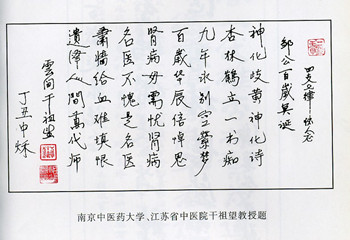 四支七律
邹公百歲冥诞
神化岐黄神化诗
杏林鹤立一书痴
九年永别空萦梦
百歲华辰倍悼思
肾病毋需忧肾病
名医不愧是名医
萧墙给血难填恨
遗泽人间萬代师
雲间干祖望
丁丑中秋
南京中医药大学、江苏省中医院干祖望教授题